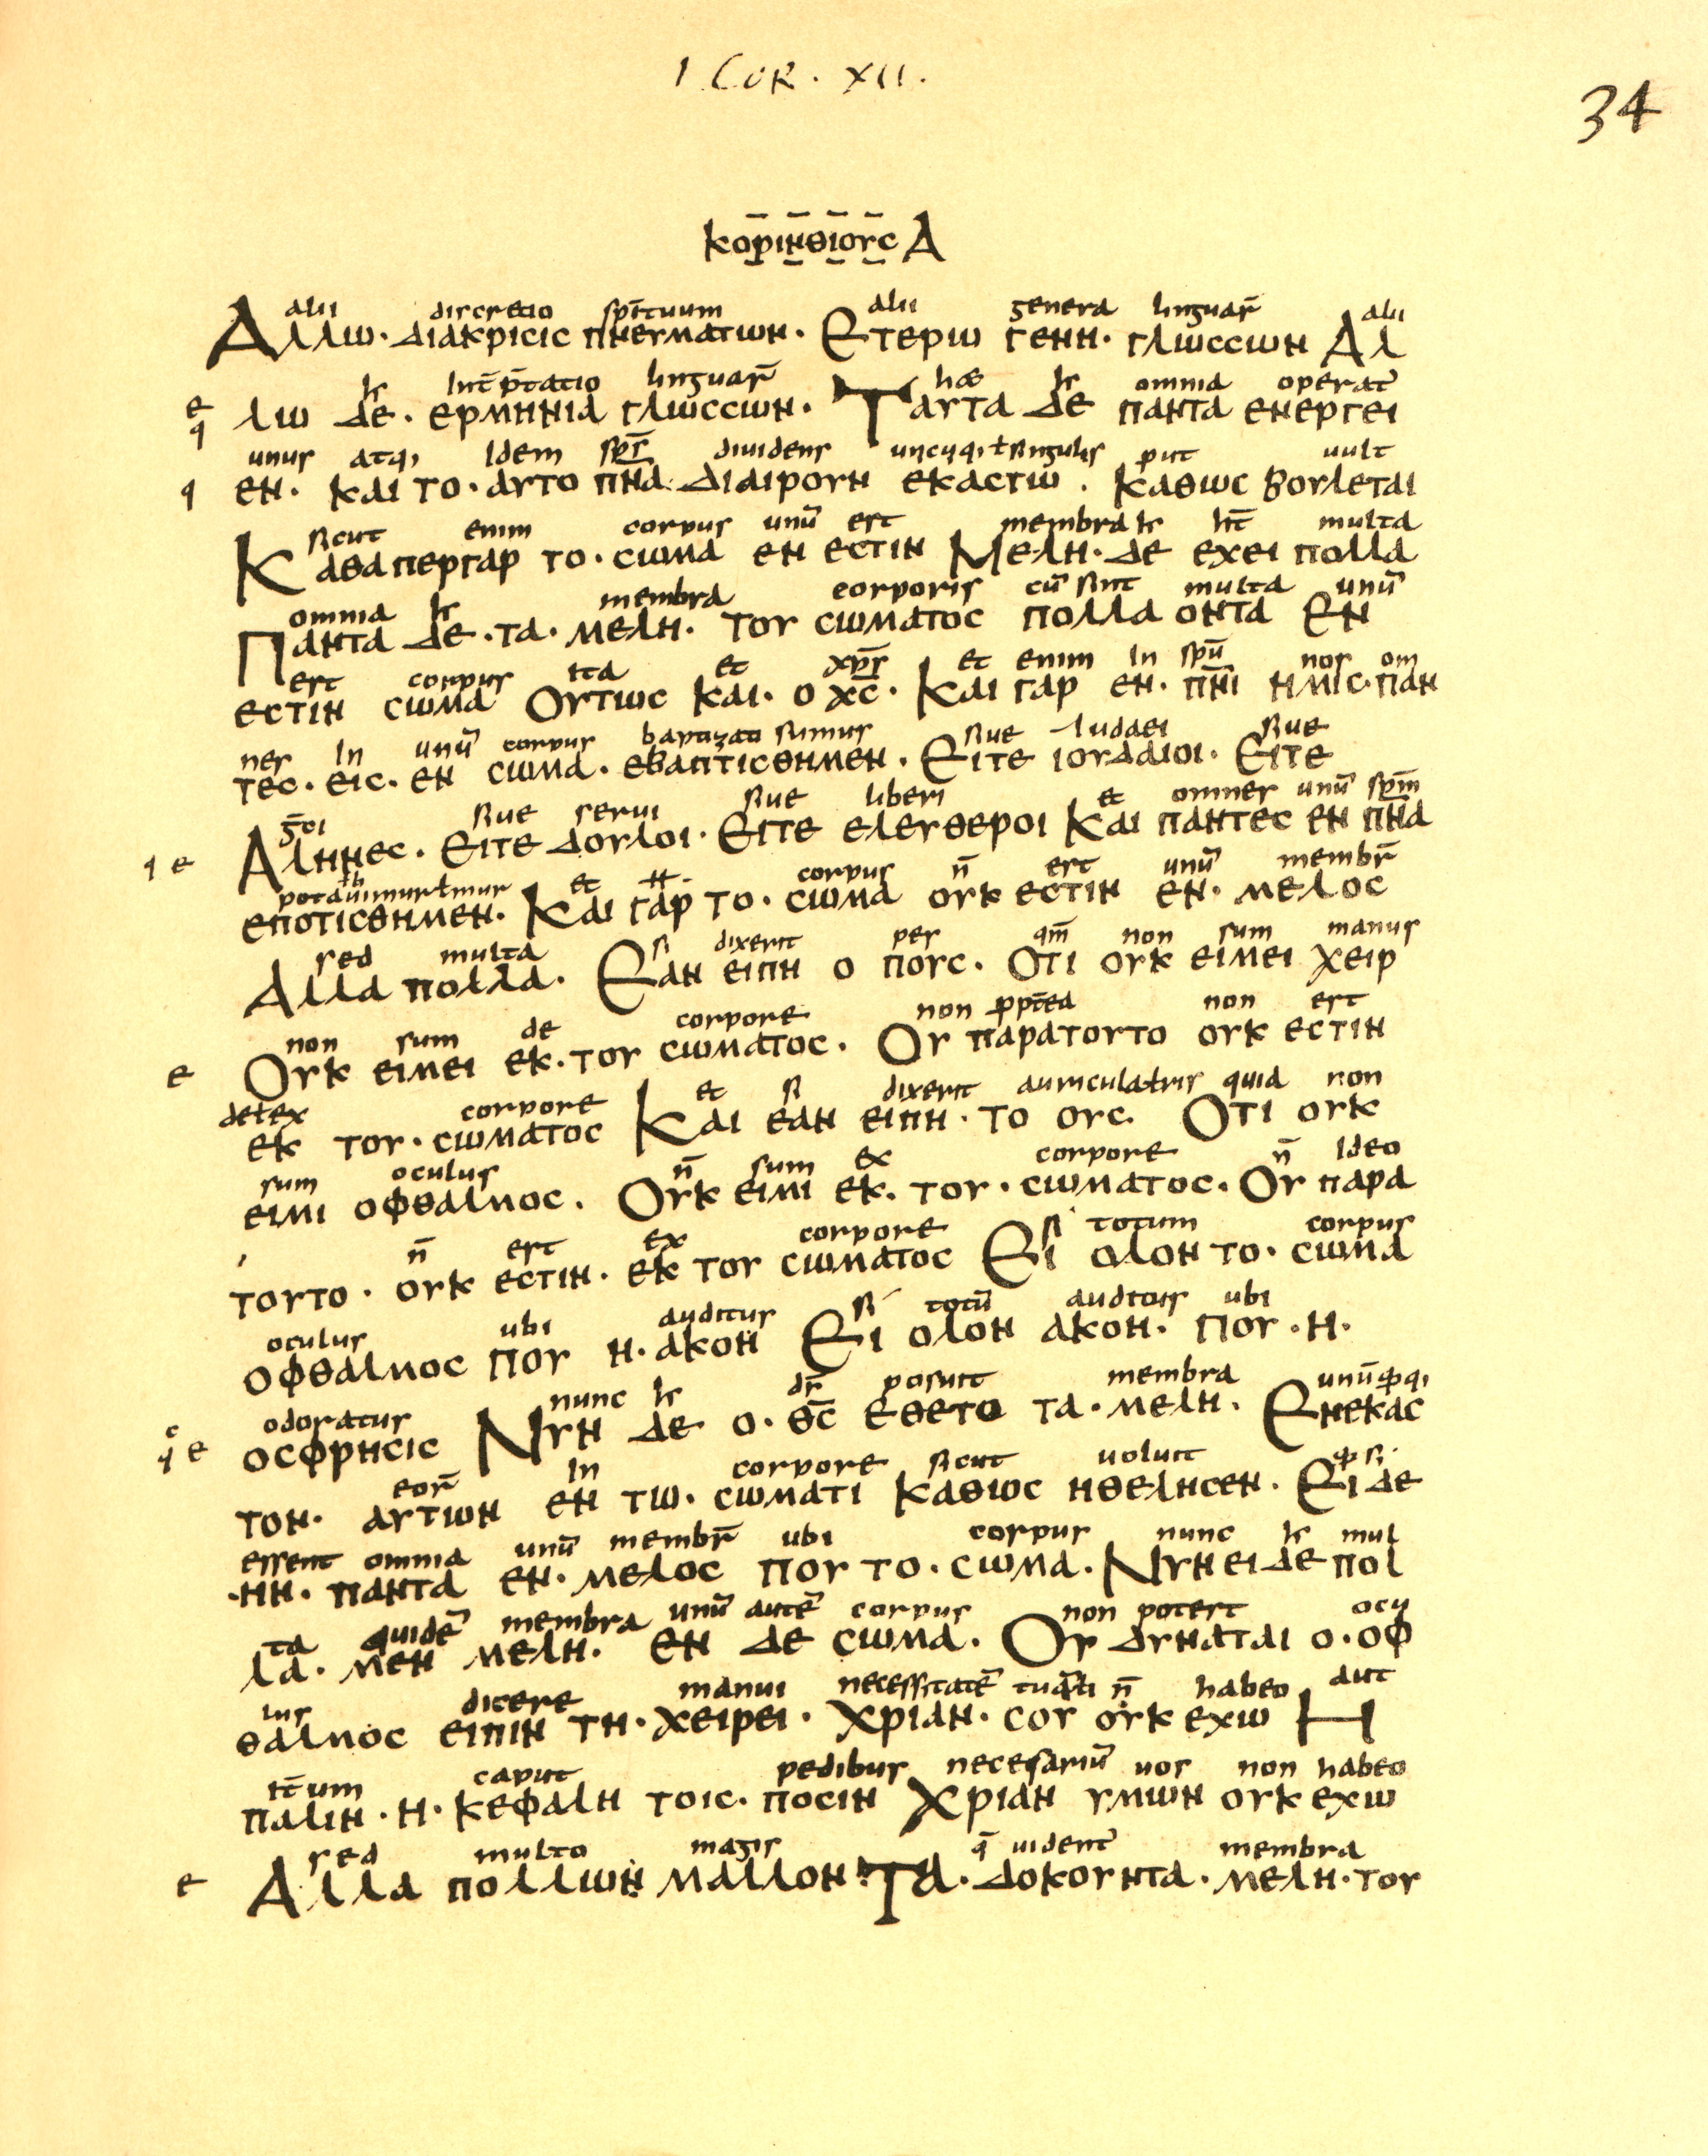 I COR. XII.
34
κορινθιουσ Α
alii discretio spituum alii genera linguar̄ alii
Αλλω· διακρισις πνευματων· Ετερω γενη· γλωσσων Αλ
hr int̄p̄tatio linguar̄ hæ hr omnia operat̄
λω δε· ερμηνια γλωσσων· Ταυτα δε παντα ενεργει
unus atqi idem sps̄ diuidens uncuqi ł singulis put uult
εν· και το· αυτο π̅ν̅α· διαιρουν εκαστω· καθως βουλεται
sicut enim corpus unū est membra hr ht̄ multa
Καθαπεργαρ το· σωμα εν εστιν Μελη· δε εχει πολλα
omnia hr membra corporis cū sint multa unū
Παντα δε· τα· μελη· του σωματος πολλα οντα Εν
est corpus ita et xp̄s et enim in spū nos om
εστιν σωμα Ουτως και· ο χ̅ς̅· Και γαρ εν· π̅ν̅ι ημις· παν
nes in unū corpus baptizati sumus siue iudaei siue
τες· εις· εν σωμα· εβαπτισθημεν· Ειτε ιουδαιοι· Ειτε
ḡei siue serui siue liberi et omnes unū spm̄
Αληνες· Ειτε δουλοι· Ειτε ελευθεροι Και παντες εν π̅ν̅α
potauimur ł mur et H· corpus n̄ est unū membr̄
εποτισθημεν· Και γαρ το· σωμα ουκ εστιν εν· μελος
sed multa si dixerit pes qm̄ non sum manus
Αλλα πολλα· Εαν ειπη ο πους· Οτι ουκ ειμει χειρ
non sum de corpore non ppt̄ea non est
Ουκ ειμει εκ· του σωματος· Ου παρατουτο ουκ εστιν
de ł ex corpore et si dixerit auricula ł ris quia non
εκ του· σωματος Και εαν ειπη· το ους· Οτι ουκ
sum oculus n̄ sum ex corpore n̄ ideo
ειμι οφθαλμος· Ουκ ειμι εκ· του· σωματος· Ου παρα
n̄ est ex corpore si totum corpus
τουτο· ουκ εστιν· εκ του σωματος Ει ολον το· σωμα
oculus ubi auditus si totū auditus ubi
οφθαλμος που η· ακοη Ει ολον ακοη· που· η·
odoratus nunc hr ds̄ posuit membra unūqqi
οσφρησις Νυν δε ο· θ̅ς̅ εθετο τα· μελη· Ενεκας
eor̄ in corpore sicut uoluit q si
τον· αυτων εν τω· σωματι καθως ηθελησεν· Ει δε
essent omnia unū membr̄ ubi corpus nunc hr mul
·ην· παντα εν· μελος που το· σωμα· Νυν ει δε πολ
ta quidē membra unū autē corpus non potest ocu
λα· μεν μελη· εν δε σωμα· Ου δυναται ο· οφ
lus dicere manui necessitatē n̄ habeo aut
θαλμος ειπιν τη· χειρει· χριαν· σου ουκ εχω Η
it̄um caput pedibus necesariū uos non habeo
παλιν· η· κεφαλη τοις· ποσιν χριαν υμων ουκ εχω
sed multo magis q̄ uident̄ membra
Αλλα πολλων μαλλον· Τα· δοκουντα· μελη· του